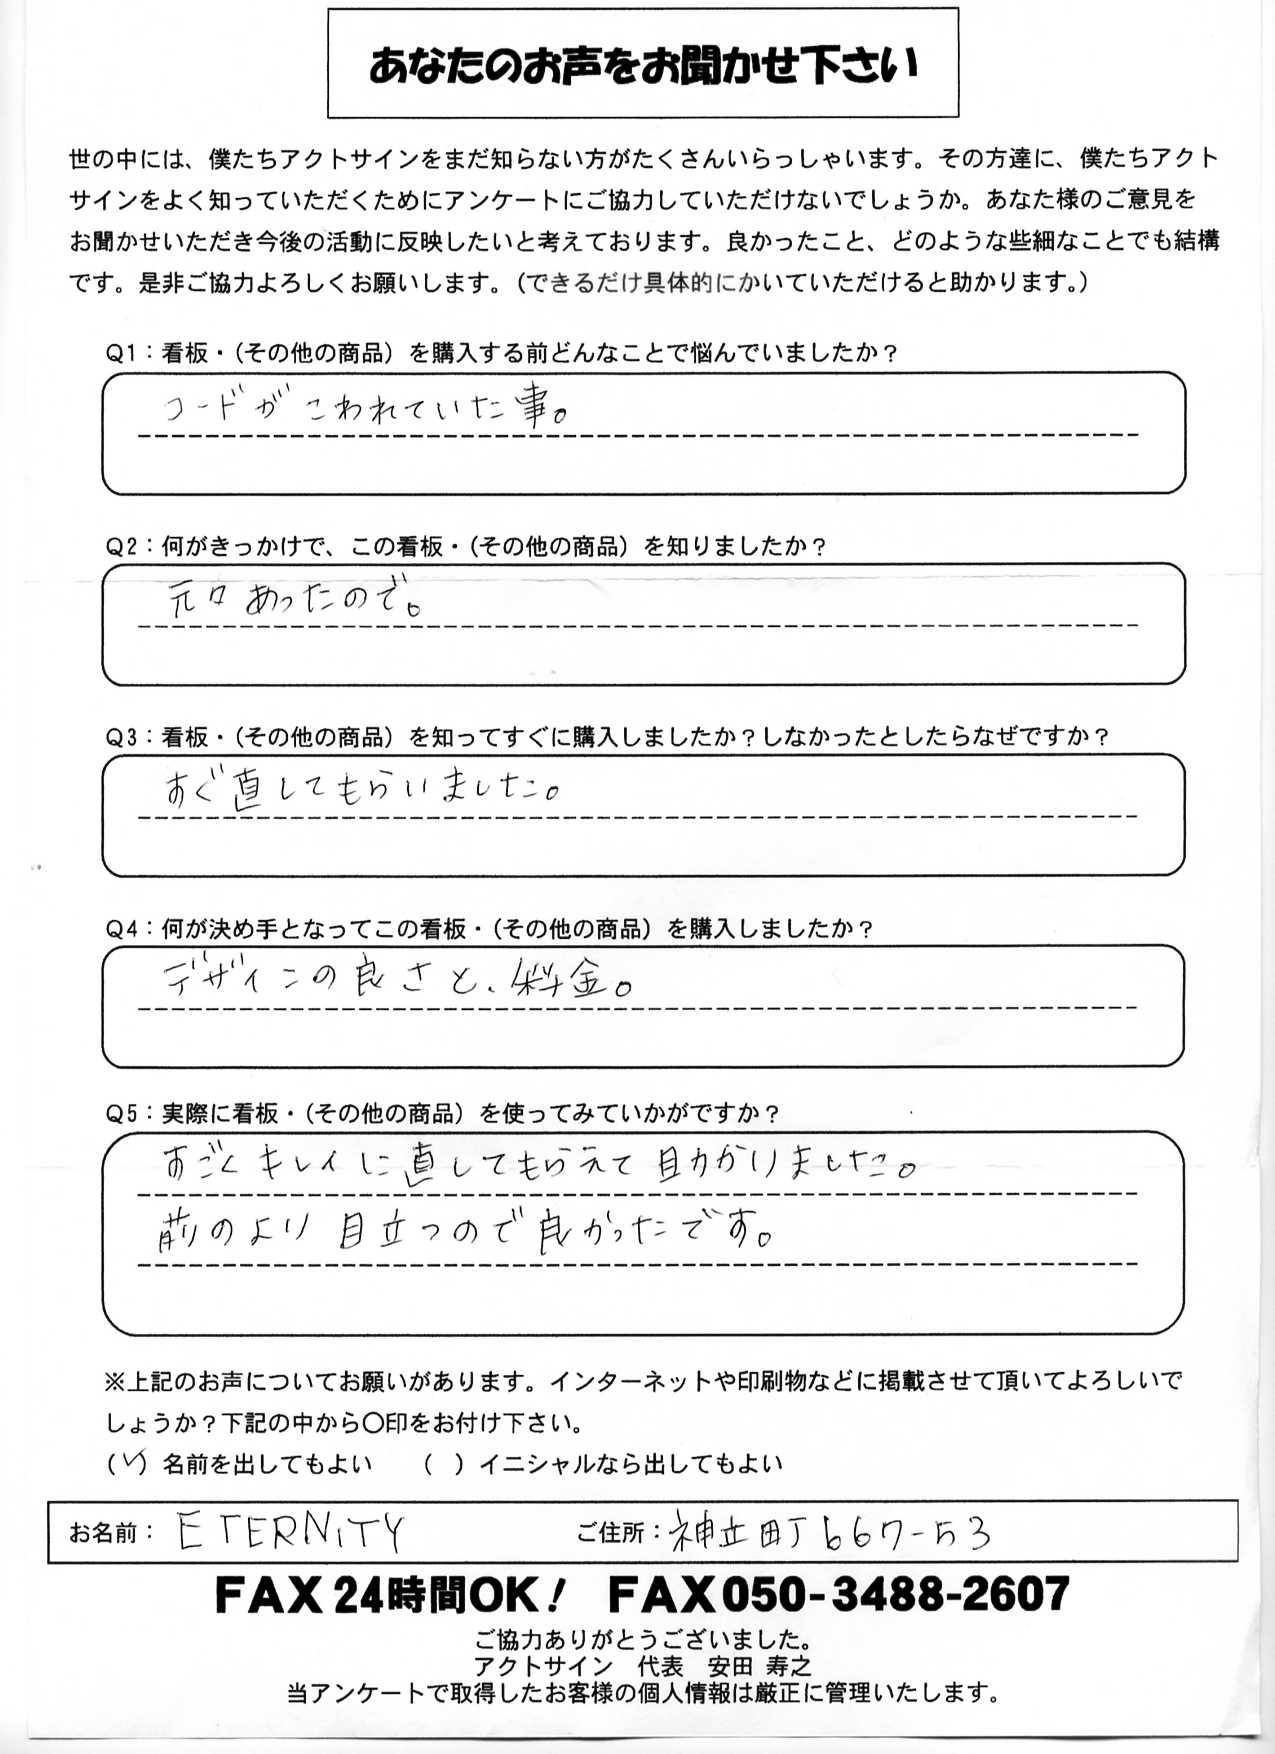 あなたのお声をお聞かせ下さい
世の中には、僕たちアクトサインをまだ知らない方がたくさんいらっしゃいます。その方達に、僕たちアクト
サインをよく知っていただくためにアンケートにご協力していただけないでしょうか。あなた様のご意見を
お聞かせいただき今後の活動に反映したいと考えております。良かったこと、どのような些細なことでも結構
です。是非ご協力よろしくお願いします。（できるだけ具体的にかいていただけると助かります。）
Q1：看板・（その他の商品）を購入する前どんなことで悩んでいましたか？
コードがこわれていた事。
Q2：何がきっかけで、この看板・（その他の商品）を知りましたか？
元々あったので。
Q3：看板・（その他の商品）を知ってすぐに購入しましたか？しなかったとしたらなぜですか？
すぐ直してもらいました。
Q4：何が決め手となってこの看板・（その他の商品）を購入しましたか？
デザインの良さと、料金。
Q5：実際に看板・（その他の商品）を使ってみていかがですか？
すごくキレイに直してもらえて助かりました。
前のより目立つので良かったです。
※上記のお声についてお願いがあります。インターネットや印刷物などに掲載させて頂いてよろしいで
しょうか？下記の中から〇印をお付け下さい。
（✓）名前を出してもよい　（ ）イニシャルなら出してもよい
お名前： ETERNiTY　ご住所：神立町667-53
FAX 24時間OK！ FAX 050-3488-2607
ご協力ありがとうございました。
アクトサイン　代表　安田 寿之
当アンケートで取得したお客様の個人情報は厳正に管理いたします。